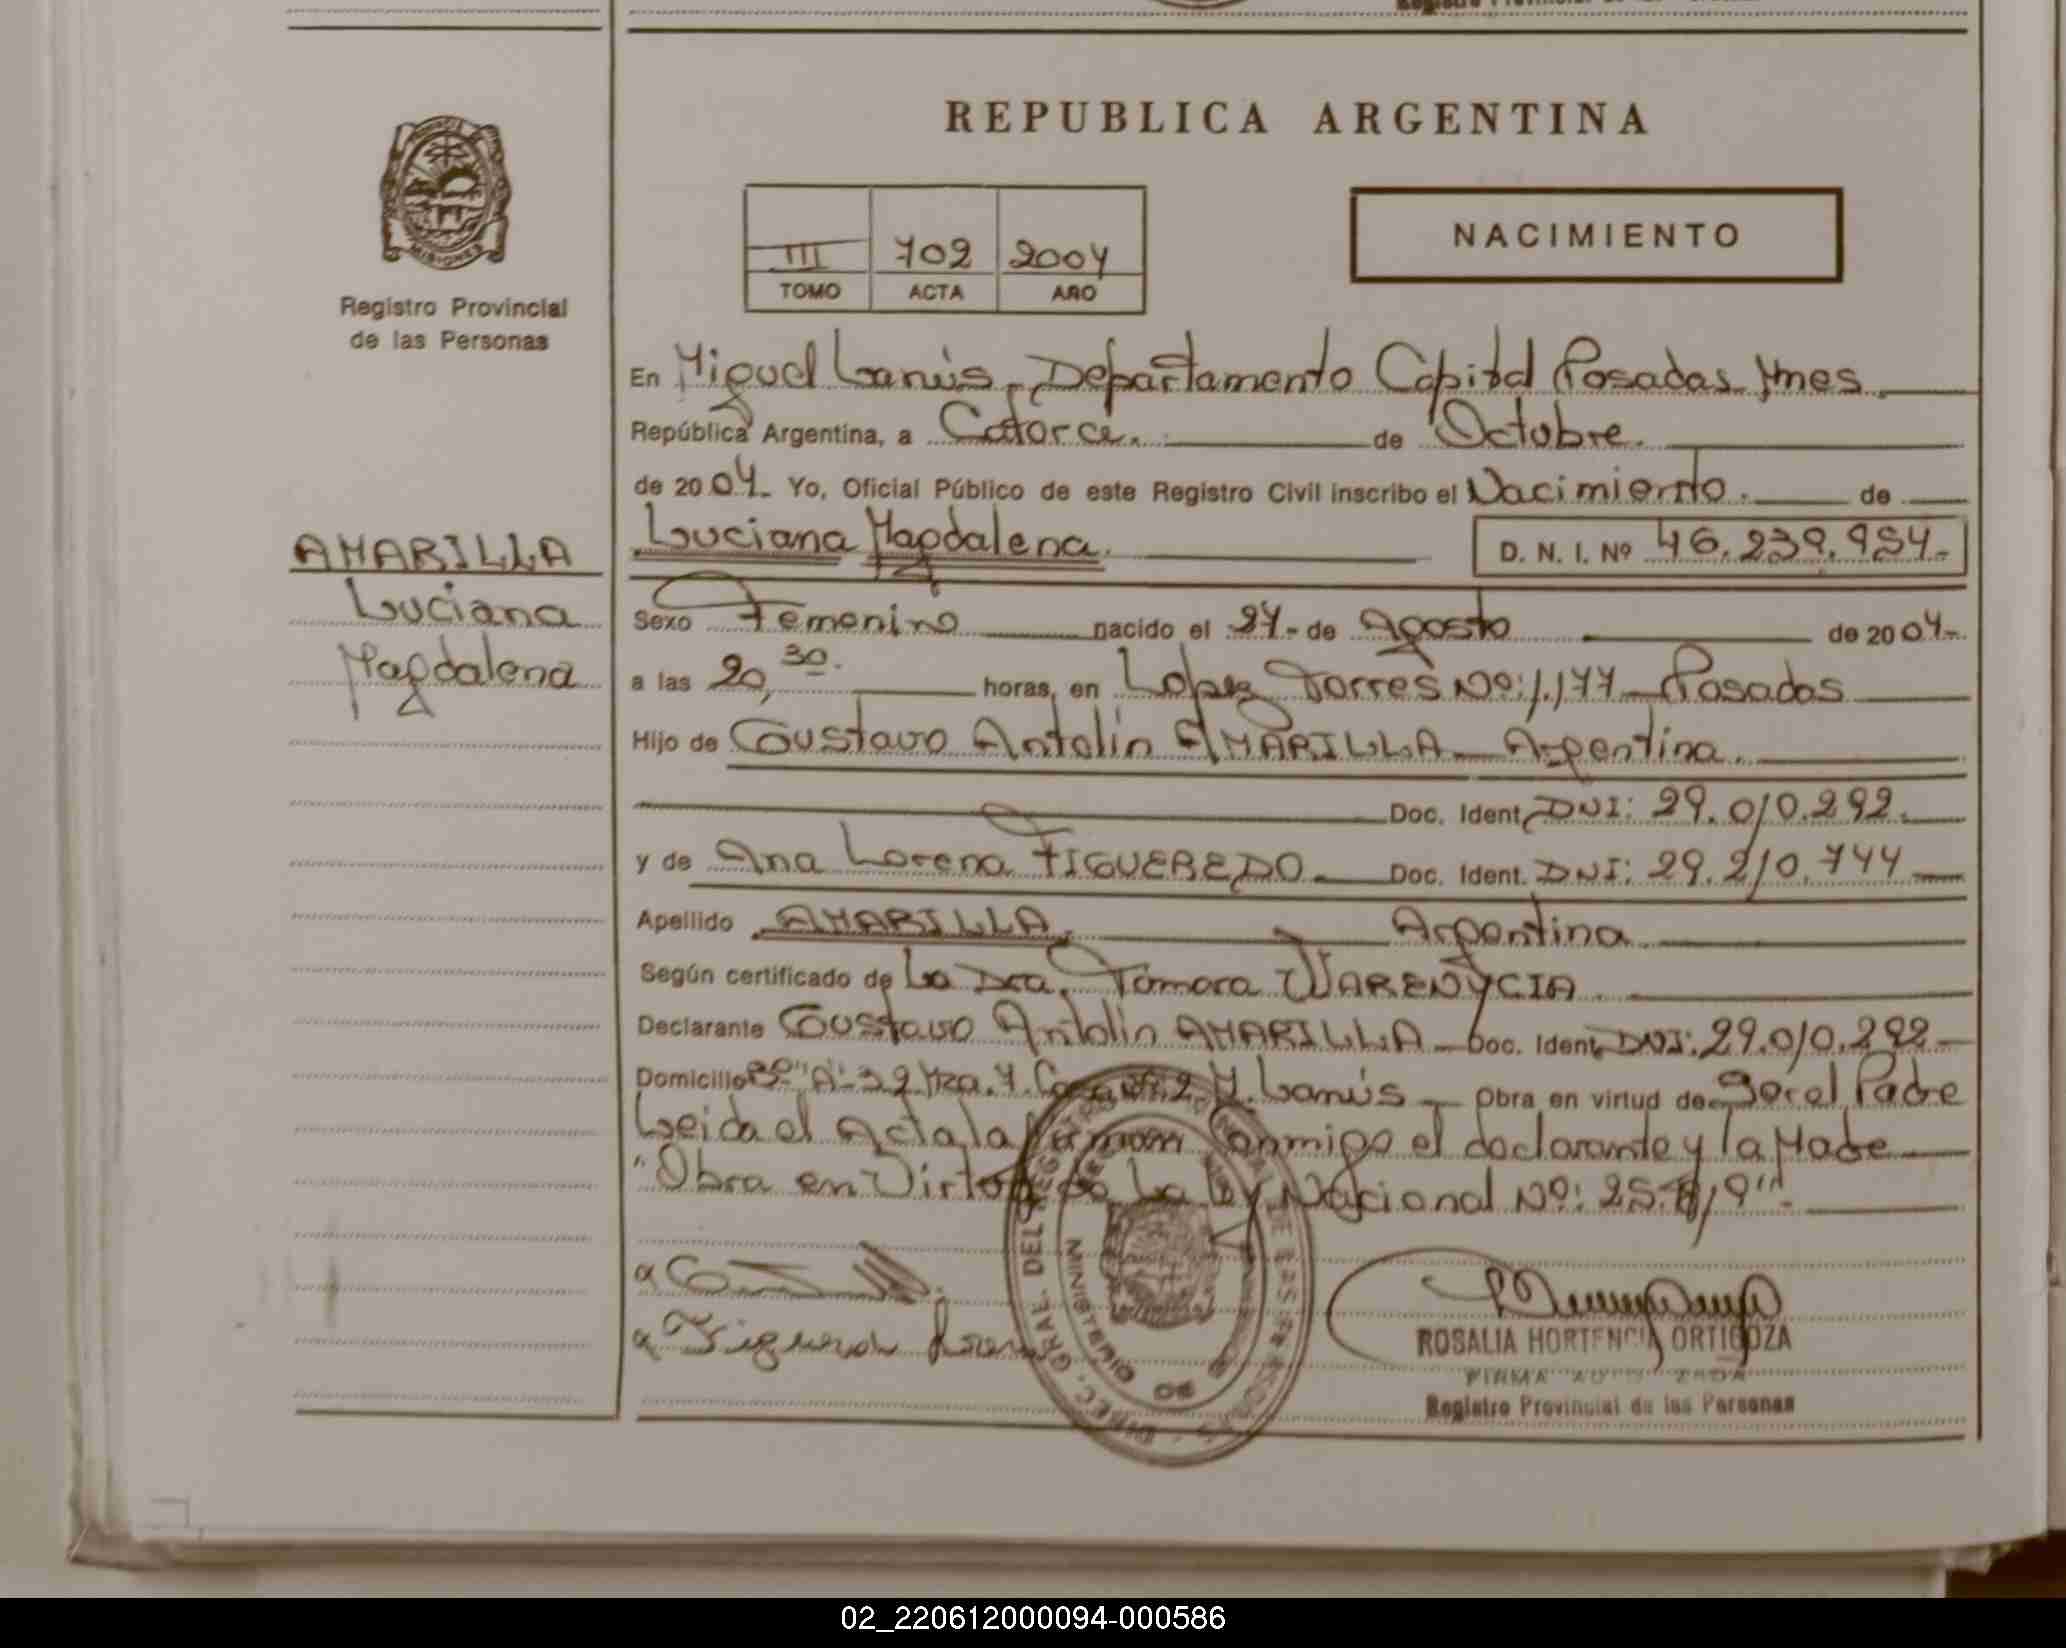 REPUBLICA ARGENTINA
NACIMIENTO
III 702 2004
TOMO ACTA AÑO
MISIONES
Registro Provincial
de las Personas
En Miguel Lanús, Departamento Capital Posadas Mnes.
República Argentina, a Catorce. de Octubre.
de 2004. Yo, Oficial Público de este Registro Civil inscribo el Nacimiento. de
Luciana Magdalena. D. N. I. Nº 46.239.954.-
AMARILLA
Luciana
Magdalena
Sexo Femenino nacido el 27- de Agosto de 2004.-
a las 20,30. horas, en Lopez Torres Nº: 1.177 Posadas
Hijo de Gustavo Antolín AMARILLA Argentina.
Doc. Ident. DNI: 29.010.292.
y de Ana Lorena FIGUEREDO Doc. Ident. DNI: 29.210.744
Apellido AMARILLA. Argentina
Según certificado de La Dra. Tamara WARENYCIA.
Declarante Gustavo Antolín AMARILLA Doc. Ident. DNI: 29.010.292
Domicilio Bº "A-32 Mza. 7. Casa 2 M. Lanús Obra en virtud de Ser el Padre
Leida el Acta la firman Conmigo el declarante y la Madre
"Obra en Virtud de La Ley Nacional Nº: 25.819".
DIREC. GRAL. DEL REGISTRO DE LAS PERSONAS
MINISTERIO DE GOBIERNO
ROSALIA HORTENCIA ORTIGOZA
FIRMA AUTORIZADA
Registro Provincial de las Personas
02_220612000094-000586